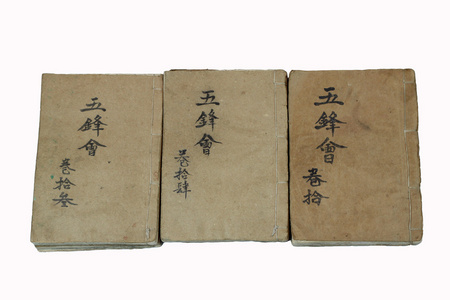 五鋒會
巻拾叁
五鋒會
巻拾肆
五鋒會
巻拾